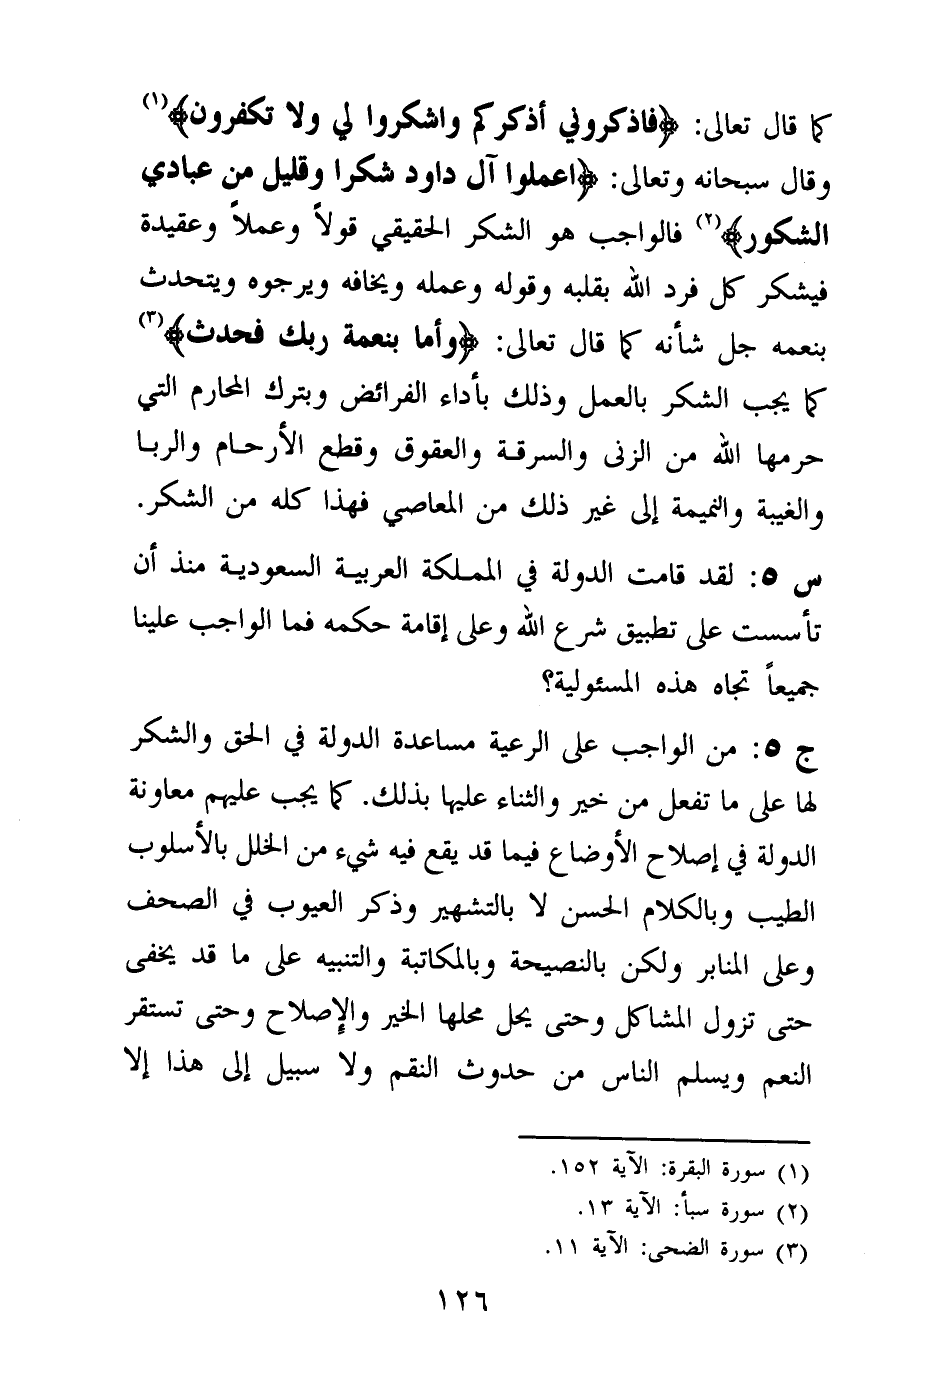 كما قال تعالى: ﴿فاذكروني أذكركم واشكروا لي ولا تكفرون﴾(١)
وقال سبحانه وتعالى: ﴿اعملوا آل داود شكرا وقليل من عبادي
الشكور﴾(٢) فالواجب هو الشكر الحقيقي قولاً وعملاً وعقيدة
فيشكر كل فرد الله بقلبه وقوله وعمله ويخافه ويرجوه ويتحدث
بنعمه جل شأنه كما قال تعالى: ﴿وأما بنعمة ربك فحدث﴾(٣)
كما يجب الشكر بالعمل وذلك بأداء الفرائض وبترك المحارم التي
حرمها الله من الزنى والسرقة والعقوق وقطع الأرحام والربا
والغيبة والنميمة إلى غير ذلك من المعاصي فهذا كله من الشكر.
س ٥: لقد قامت الدولة في المملكة العربية السعودية منذ أن
تأسست على تطبيق شرع الله وعلى إقامة حكمه فما الواجب علينا
جميعاً تجاه هذه المسئولية؟
ج ٥: من الواجب على الرعية مساعدة الدولة في الحق والشكر
لها على ما تفعل من خير والثناء عليها بذلك. كما يجب عليهم معاونة
الدولة في إصلاح الأوضاع فيما قد يقع فيه شيء من الخلل بالأسلوب
الطيب وبالكلام الحسن لا بالتشهير وذكر العيوب في الصحف
وعلى المنابر ولكن بالنصيحة وبالمكاتبة والتنبيه على ما قد يخفى
حتى تزول المشاكل وحتى يحل محلها الخير والإصلاح وحتى تستقر
النعم ويسلم الناس من حدوث النقم ولا سبيل إلى هذا إلا
(١) سورة البقرة: الآية ١٥٢.
(٢) سورة سبأ: الآية ١٣.
(٣) سورة الضحى: الآية ١١.
١٢٦